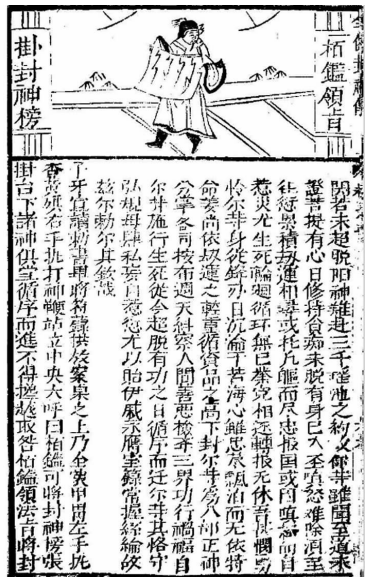 全像封神傳
栢鑑領旨
掛封神榜
閬若未超脫陽神難赴三千瑤池之約又你等雖聞至道未
證菩提有心日修持貪痴未脫有身已入至嗔怒難除須至
往愆累積劫運相尋或托凡軀而尽忠报国或因嗔怒而自
惹灾尤生死輪迴循环無已孽寃相逐轉报无休吾甚憫焉
怜尔等身從鋒刃日沉淪于苦海心雖忠藎飄泊而无依特
命姜尚依劫運之輕重循資品之高下封尔等為八部正神
分掌各司按布週天糾察人間善悪檢夲三界功行禍福自
尔等施行生死從今超脫有功之日循序而迁尔等其恪守
弘規毋肆私妄自惹愆尤以貽伊戚永膺宝籙常握絲綸故
兹尔勅尔其欽哉
子牙宣讀勅書畢將符籙供放案桌之上乃全裝甲冑左手执
杏黃旂右手执打神鞭站立中央大呼曰栢鑑可將封神榜張
掛台下諸神俱當循序而進不得搀越取咎栢鑑領法旨將封